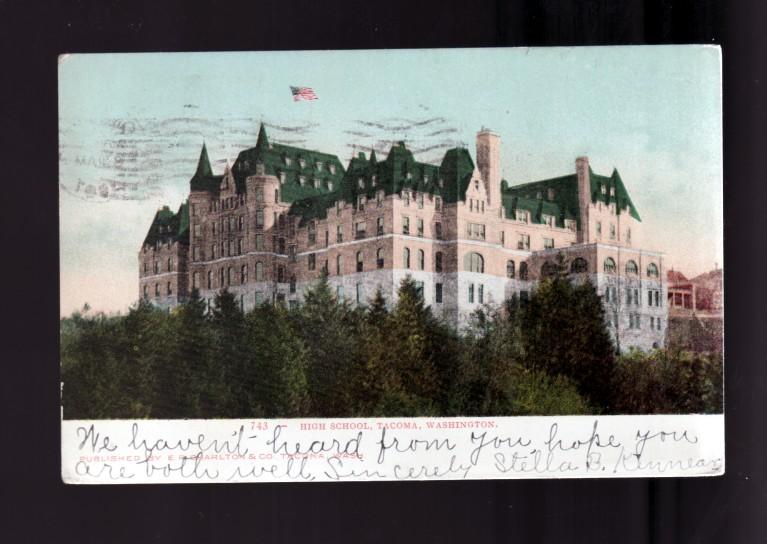 MAR
743 — HIGH SCHOOL, TACOMA, WASHINGTON.
We haven't heard from you, hope you
PUBLISHED BY E. P. CHARLTON & CO. TACOMA, WASH.
are both well, Sincerely Stella B. Kinnear